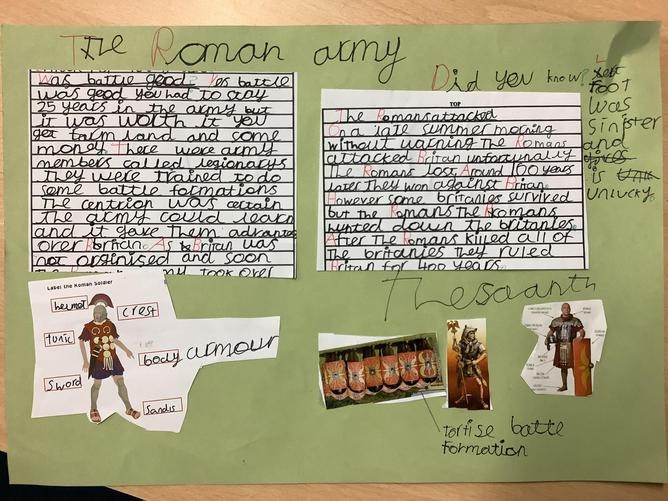 The Roman army
Was battle good? Was battle
was good you had to stay
25 years in the army but
it was worth it you
get farm land and some
money. There were army
members called legionarys
They were trained to do
some battle formations
The centrion was certain
The army could learn
and it gave them advantage
over As Britan was
not orginised and soon
army took over
Did you know?
TOP
The Romans attacked
On a late summer morning
without warning The Romans
attacked Britan unfortunally
The Romans lost Around 100 years
later They won against Britan.
However some britanies survived
but the Romans The Romans
hunted down the britanies.
After The Romans killed all of
The britanies They ruled
Britan for 400 years.
foot
was
sinister
and
is
unlucky.
Label the Roman Soldier
helmot
crest
tunic
body armour
sword
Sandls
tortise battle
formation